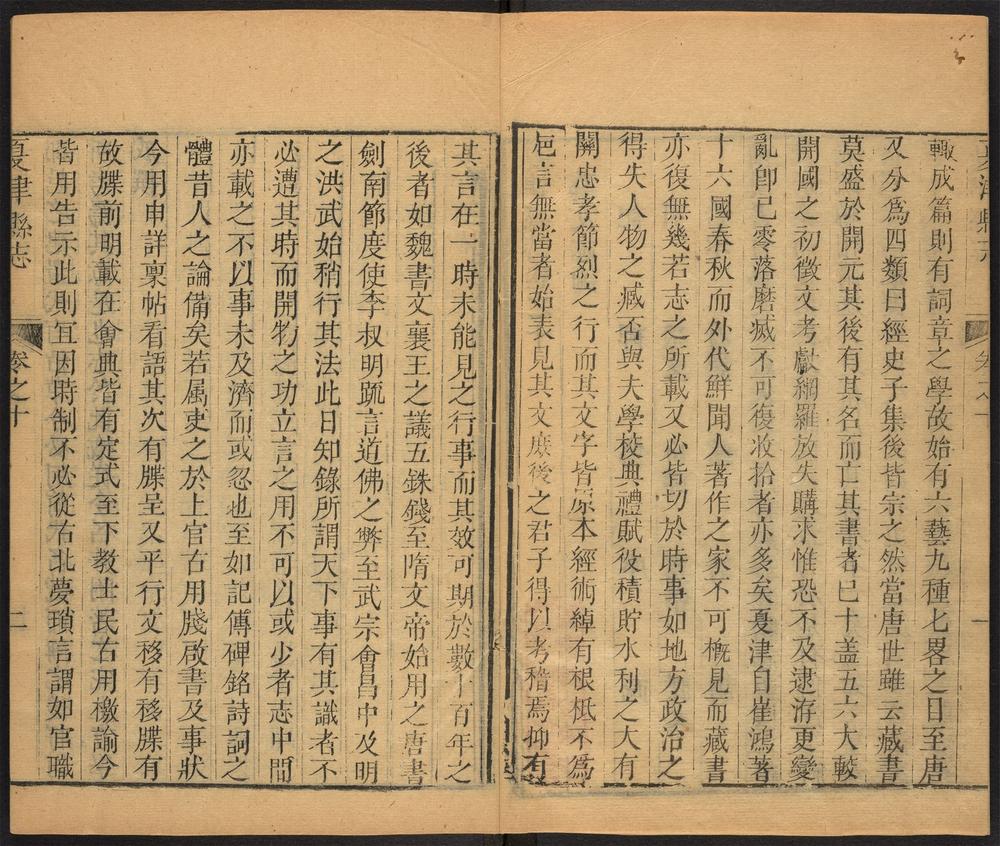 輙成篇則有詞章之學故始有六藝九種七畧之目至唐
又分爲四類曰經史子集後皆宗之然當唐世雖云藏書
莫盛於開元其後有其名而亡其書者巳十盖五六大較
開國之初徵文考獻網羅放失購求惟恐不及逮洊更變
亂卽已零落磨滅不可復收拾者亦多矣夏津自崔鴻著
十六國春秋而外代鮮聞人著作之家不可槪見而藏書
亦復無幾若志之所載又必皆切於時事如地方政治之
得失人物之臧否與夫學校典禮賦役積貯水利之大有
關忠孝節烈之行而其文字皆原本經術綽有根柢不爲
巵言無當者始表見其文庶後之君子得以考稽焉抑有
其言在一時未能見之行事而其效可期於數十百年之
後者如魏書文襄王之議五銖錢至隋文帝始用之唐書
劍南節度使李叔明䟽言道佛之弊至武宗會昌中及明
之洪武始稍行其法此日知錄所謂天下事有其識者不
必遭其時而開物之功立言之用不可以或少者志中間
亦載之不以事未及濟而或忽也至如記傳碑銘詩詞之
體昔人之論備矣若属吏之於上官古用牋啟書及事狀
今用申詳禀帖看語其次有牒呈又平行文移有移牒有
故牒前明載在會典皆有定式至下教士民古用檄諭今
皆用告示此則宜因時制不必從古北夢瑣言謂如官職
夏津縣志
卷之十
二